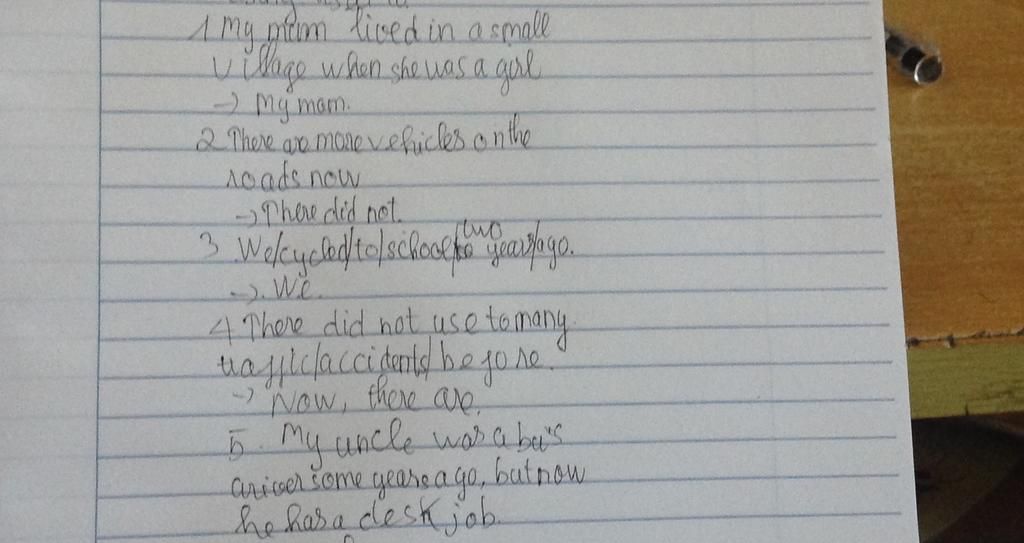 1 My mom lived in a small
village when she was a girl
→ My mom.
2 There are more vehicles on the
roads now
→ There did not.
two
3. We/cycled/to/school/ years/ago.
→. We.
4 There did not use to many
traffic/accidents/before.
→ Now, there are.
5. My uncle was a bus
driver some years ago, but now
he has a desk job.